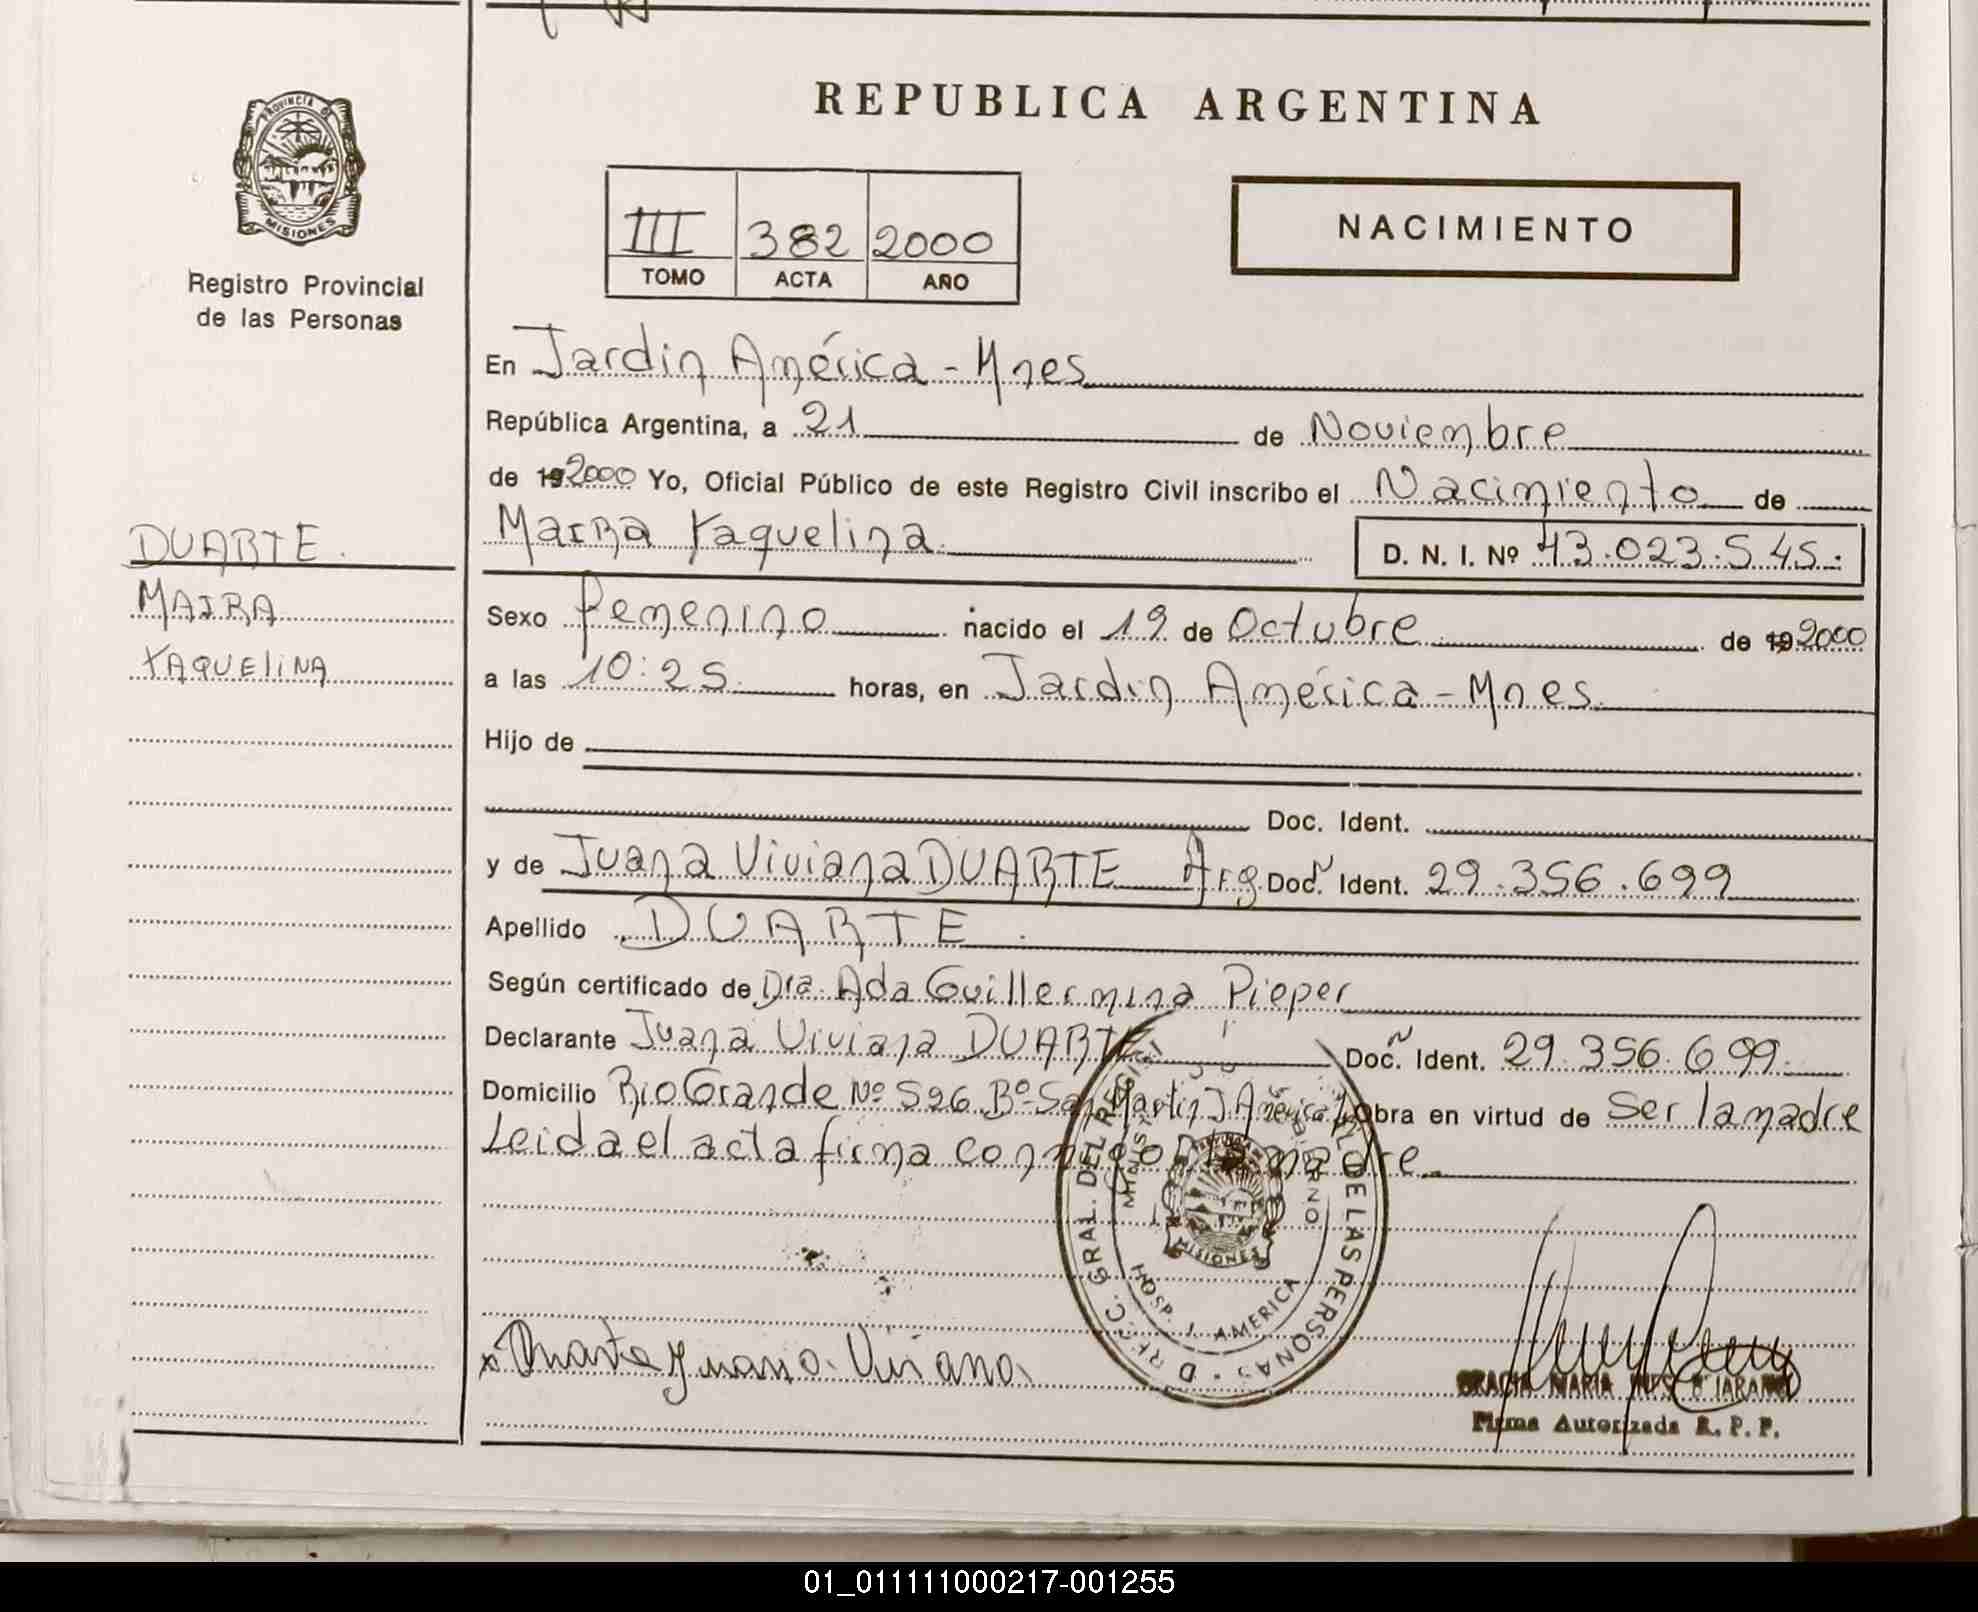 REPUBLICA ARGENTINA
PROVINCIA DE
MISIONES
Registro Provincial
de las Personas
III 382 2000
TOMO ACTA AÑO
NACIMIENTO
En Jardin América - Mnes
República Argentina, a 21 de Noviembre
de 19 2000 Yo, Oficial Público de este Registro Civil inscribo el Nacimiento de
Maira Yaquelina D. N. I. Nº 43.023.545.
DUARTE.
MAIRA
YAQUELINA
Sexo femenino nacido el 19 de Octubre de 19 2000
a las 10:25 horas, en Jardin América - Mnes.
Hijo de
Doc. Ident.
y de Juana Viviana DUARTE Arg. Doc. Ident. 29.356.699
Apellido DUARTE.
Según certificado de Dra. Ada Guillermina Pieper
Declarante Juana Viviana DUARTE Doc. Ident. 29.356.699.
Domicilio Rio Grande Nº 596 Bº San Martin J. América Obra en virtud de Ser la madre
Leida el acta firma conmigo la madre.
MISIONES
HOSP. J. AMERICA
DE LAS PERSONAS
x Duarte Juana Viviana
GRACIA MARIA INES
Firma Autorizada R. P. P.
01_011111000217-001255